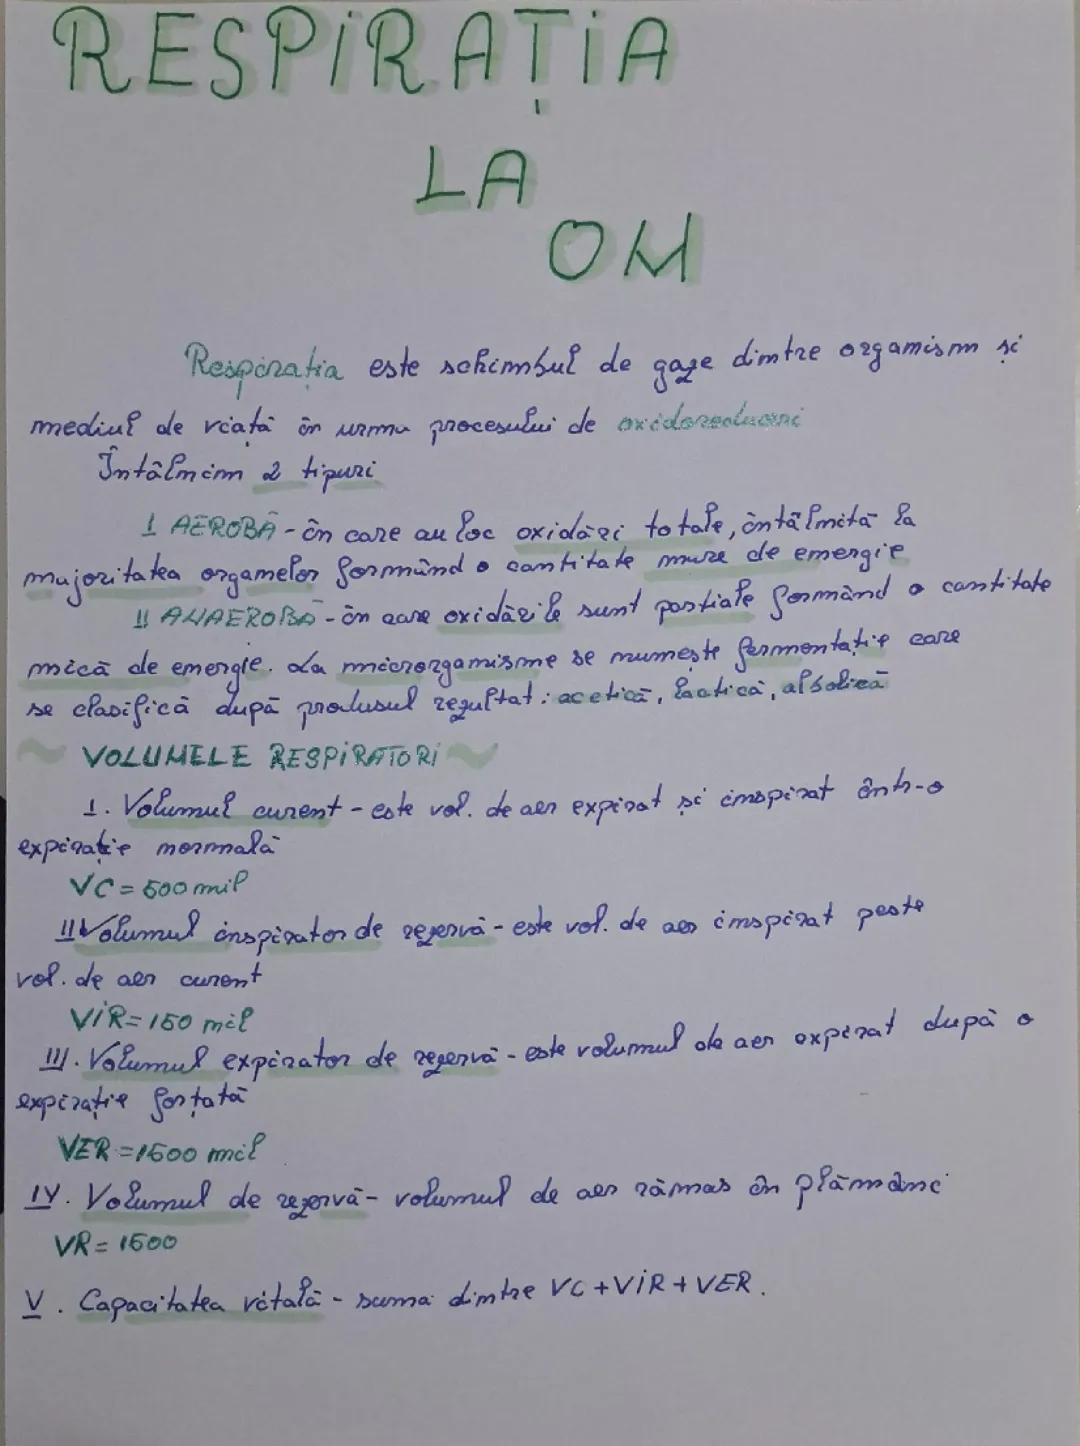 RESPIRAȚIA
LA
OM
Respirația este schimbul de gaze dintre organism și
mediul de viață în urma procesului de oxidoreduceri
Întâlnim 2 tipuri
I AEROBĂ - în care au loc oxidări totale, întâlnită la
majoritatea organelor formând o cantitate mare de energie
II ANAEROBĂ - în care oxidările sunt parțiale formând o cantitate
mică de energie. La microorganisme se numește fermentație care
se clasifică după produsul rezultat: acetică, lactică, alcolică
~ VOLUMELE RESPIRATORI ~
I. Volumul curent - este vol. de aer expirat și inspirat într-o
expirație normală
VC = 500 mil
II Volumul inspirator de rezervă - este vol. de aer inspirat peste
vol. de aer curent
VIR = 150 mil
III. Volumul expirator de rezervă - este volumul de aer expirat după o
expirație forțată
VER = 1500 mil
IV. Volumul de rezervă - volumul de aer rămas în plămâni
VR = 1500
V. Capacitatea vitală - suma dintre VC + VIR + VER.